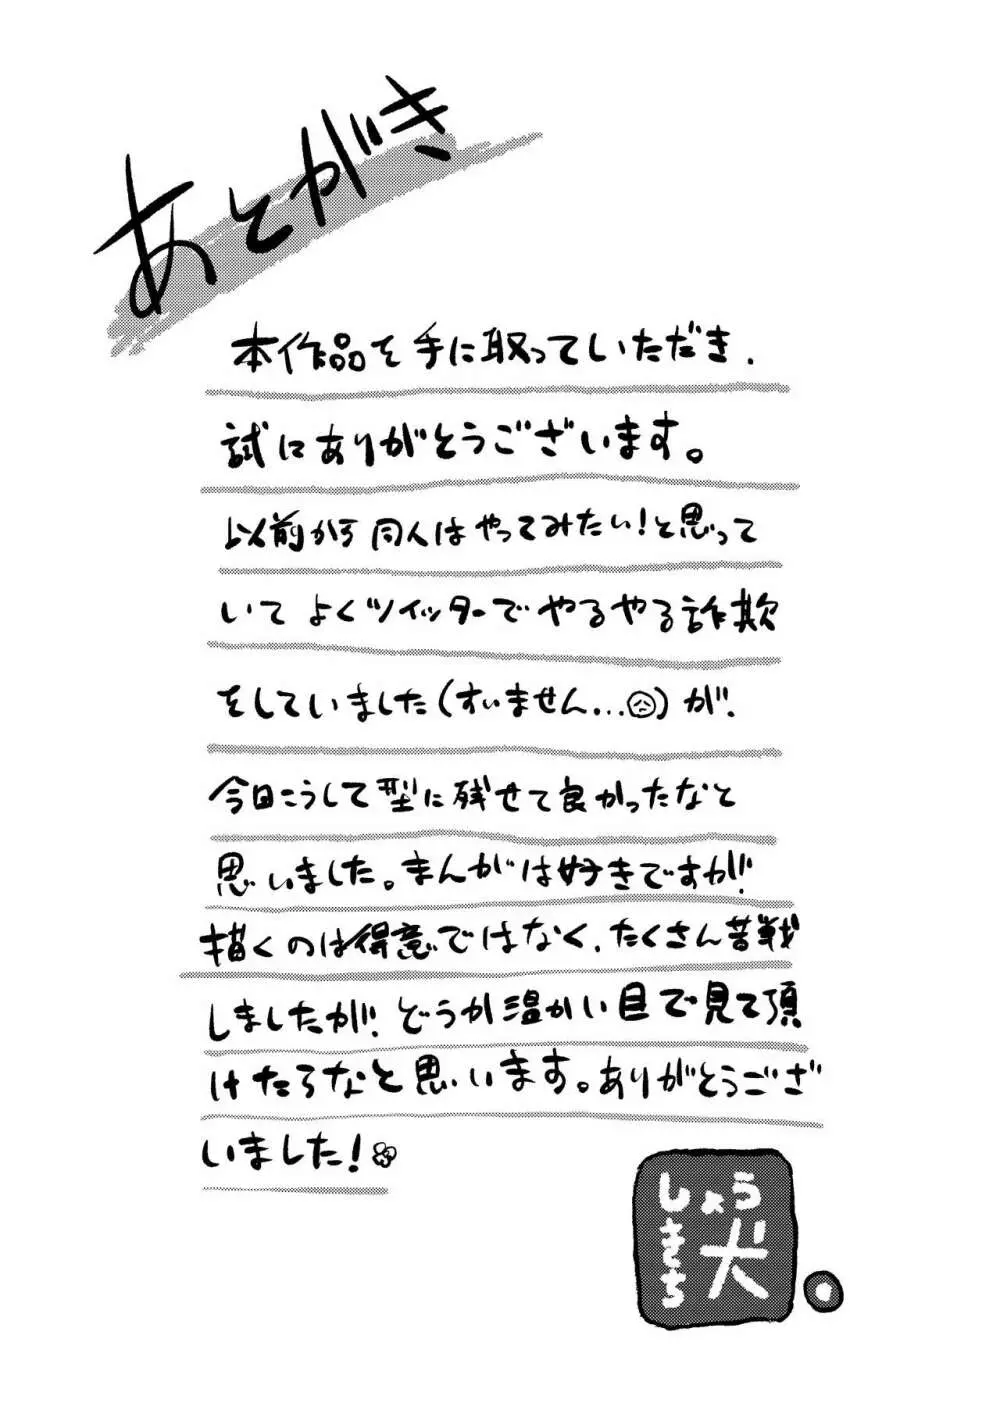 あとがき
本作品を手に取っていただき、
試にありがとうございます。
以前から同人はやってみたい!と思って
いて よくツイッターでやるやる詐欺
をしていました(すいません...)が、
今日こうして型に残せて良かったなと
思いました。まんがは好きですが、
描くのは得意ではなく、たくさん苦戦
しましたが、どうか温かい目で見て頂
けたらなと思います。ありがとうござ
いました!
しょう
きち
犬